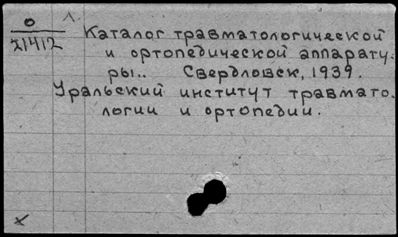 О
21412
Каталог травматологической
и ортопедической аппарату-
ры.. Свердловск, 1939.
Уральский институт травмато-
логии и ортопедии.